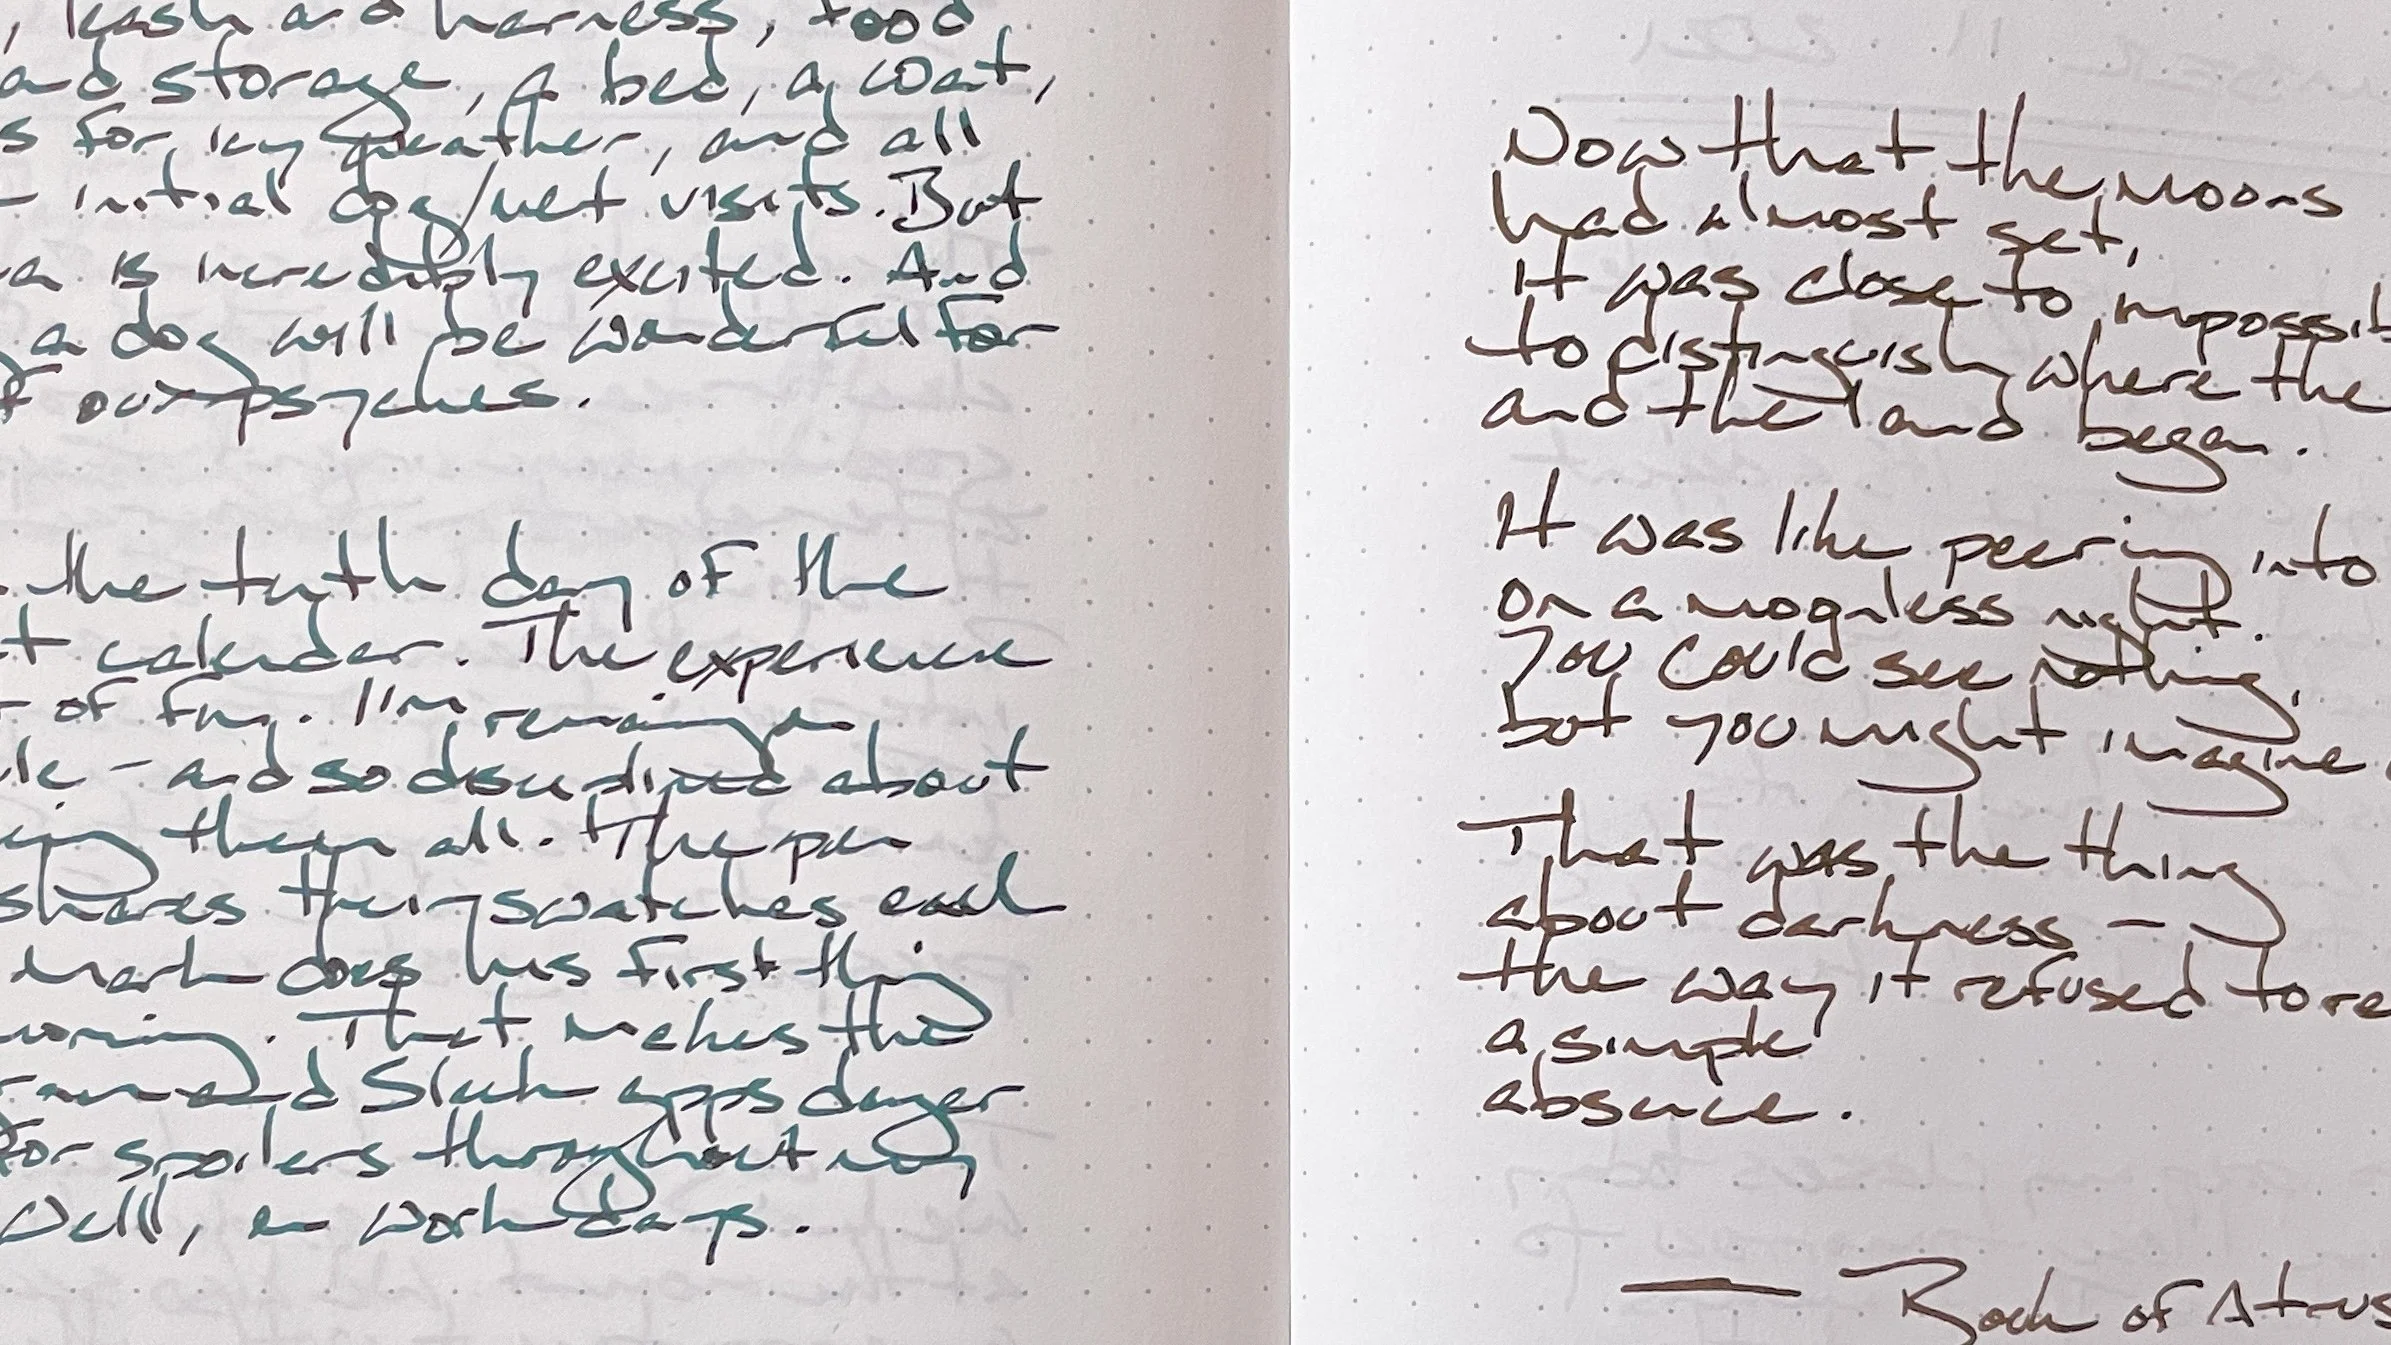 , leash and harness, food
and storage, a bed, a coat,
s for icy weather, and all
initial dog/vet visits. But
a is incredibly excited. And
a dog will be wonderful for
f our psyches.
the tenth day of the
t calender. The experience
of fun. I'm remaining
le - and so disciplined about
ing them all. The pen
shares their swatches each
Mark does his first thing
morning. That makes the
and Slack apps danger
for spoilers throughout my
Well, on work days.
Now that the moons
had almost set,
it was close to impossib
to distinguish where the
and the land began.
It was like peering into
on a moonless night.
You could see nothing,
but you might imagine
That was the thing
about darkness -
the way it refused to re
a simple
absence.
— Book of Atrus